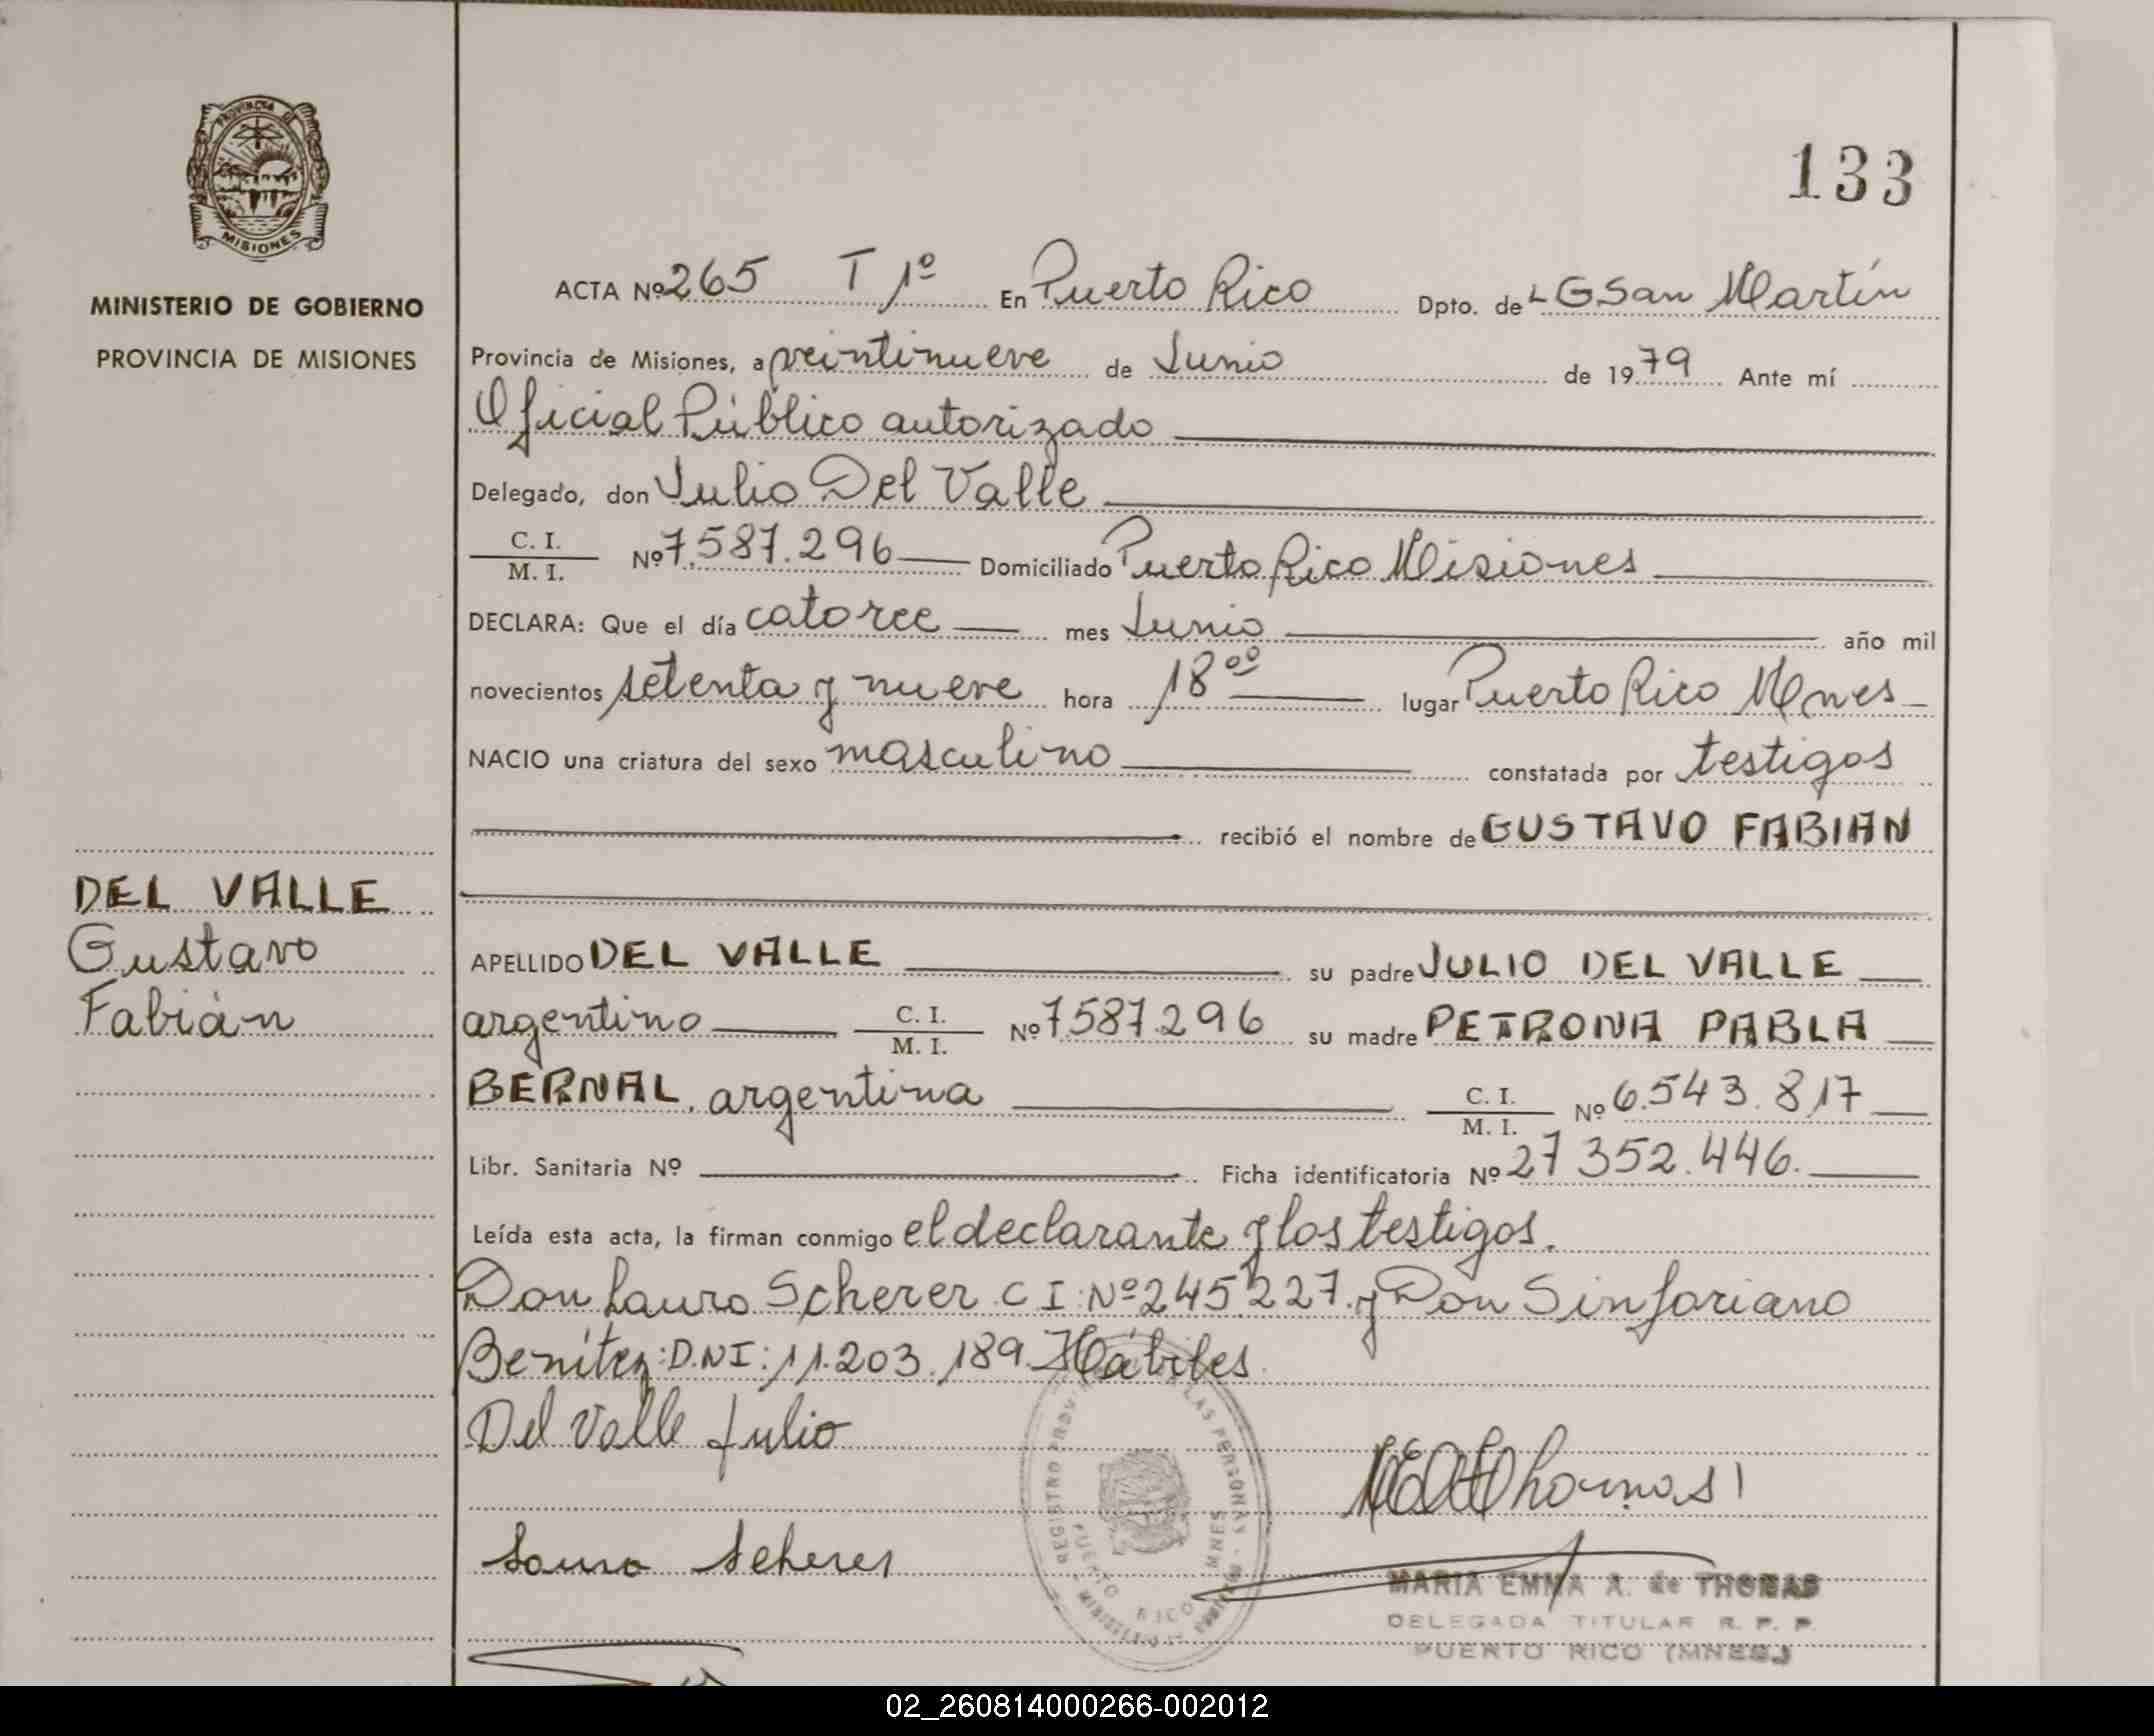 PROVINCIA DE
MISIONES
MINISTERIO DE GOBIERNO
PROVINCIA DE MISIONES
133
ACTA Nº 265 T 1º En Puerto Rico Dpto. de L G San Martín
Provincia de Misiones, a veintinueve de Junio de 1979 Ante mí
Oficial Público autorizado
Delegado, don Julio Del Valle
C. I.
M. I. Nº 7.587.296 Domiciliado Puerto Rico Misiones
DECLARA: Que el día catorce mes Junio año mil
novecientos setenta y nueve hora 18 00 lugar Puerto Rico Mnes
NACIO una criatura del sexo masculino constatada por testigos
recibió el nombre de GUSTAVO FABIAN
DEL VALLE
Gustavo
Fabián
APELLIDO DEL VALLE su padre JULIO DEL VALLE
argentino C. I.
M. I. Nº 7587.296 su madre PETRONA PABLA
BERNAL. argentina C. I.
M. I. Nº 6.543.817
Libr. Sanitaria Nº Ficha identificatoria Nº 27 352.446.
Leída esta acta, la firman conmigo el declarante y los testigos.
Don Lauro Scherer C I: Nº 245.227. y Don Sinforiano
Benítez: D.N I: 11.203.189. Hábiles.
Del Valle Julio
Lauro Scherer
REGISTRO PROV. LAS PERSONAS
PUERTO RICO MNES
MARIA EMMA A. de THOMAS
DELEGADA TITULAR R. P. P.
PUERTO RICO (MNES.)
02_260814000266-002012